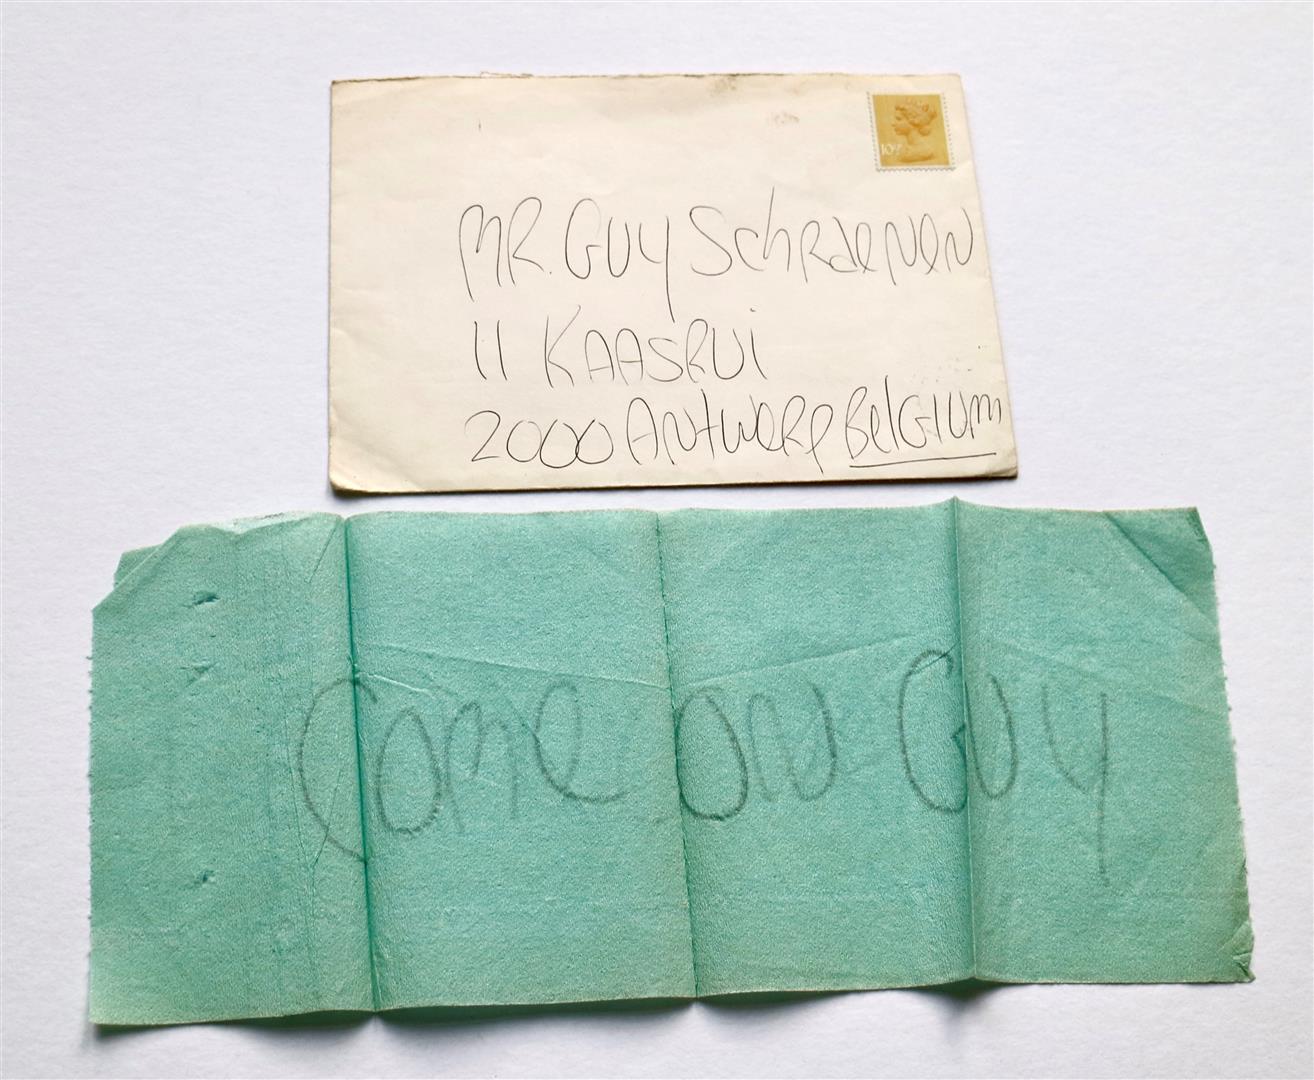 10P
MR. GUY SCHRAENEN
11 KAASRUI
2000 ANTWERP BELGIUM
COME ON GUY